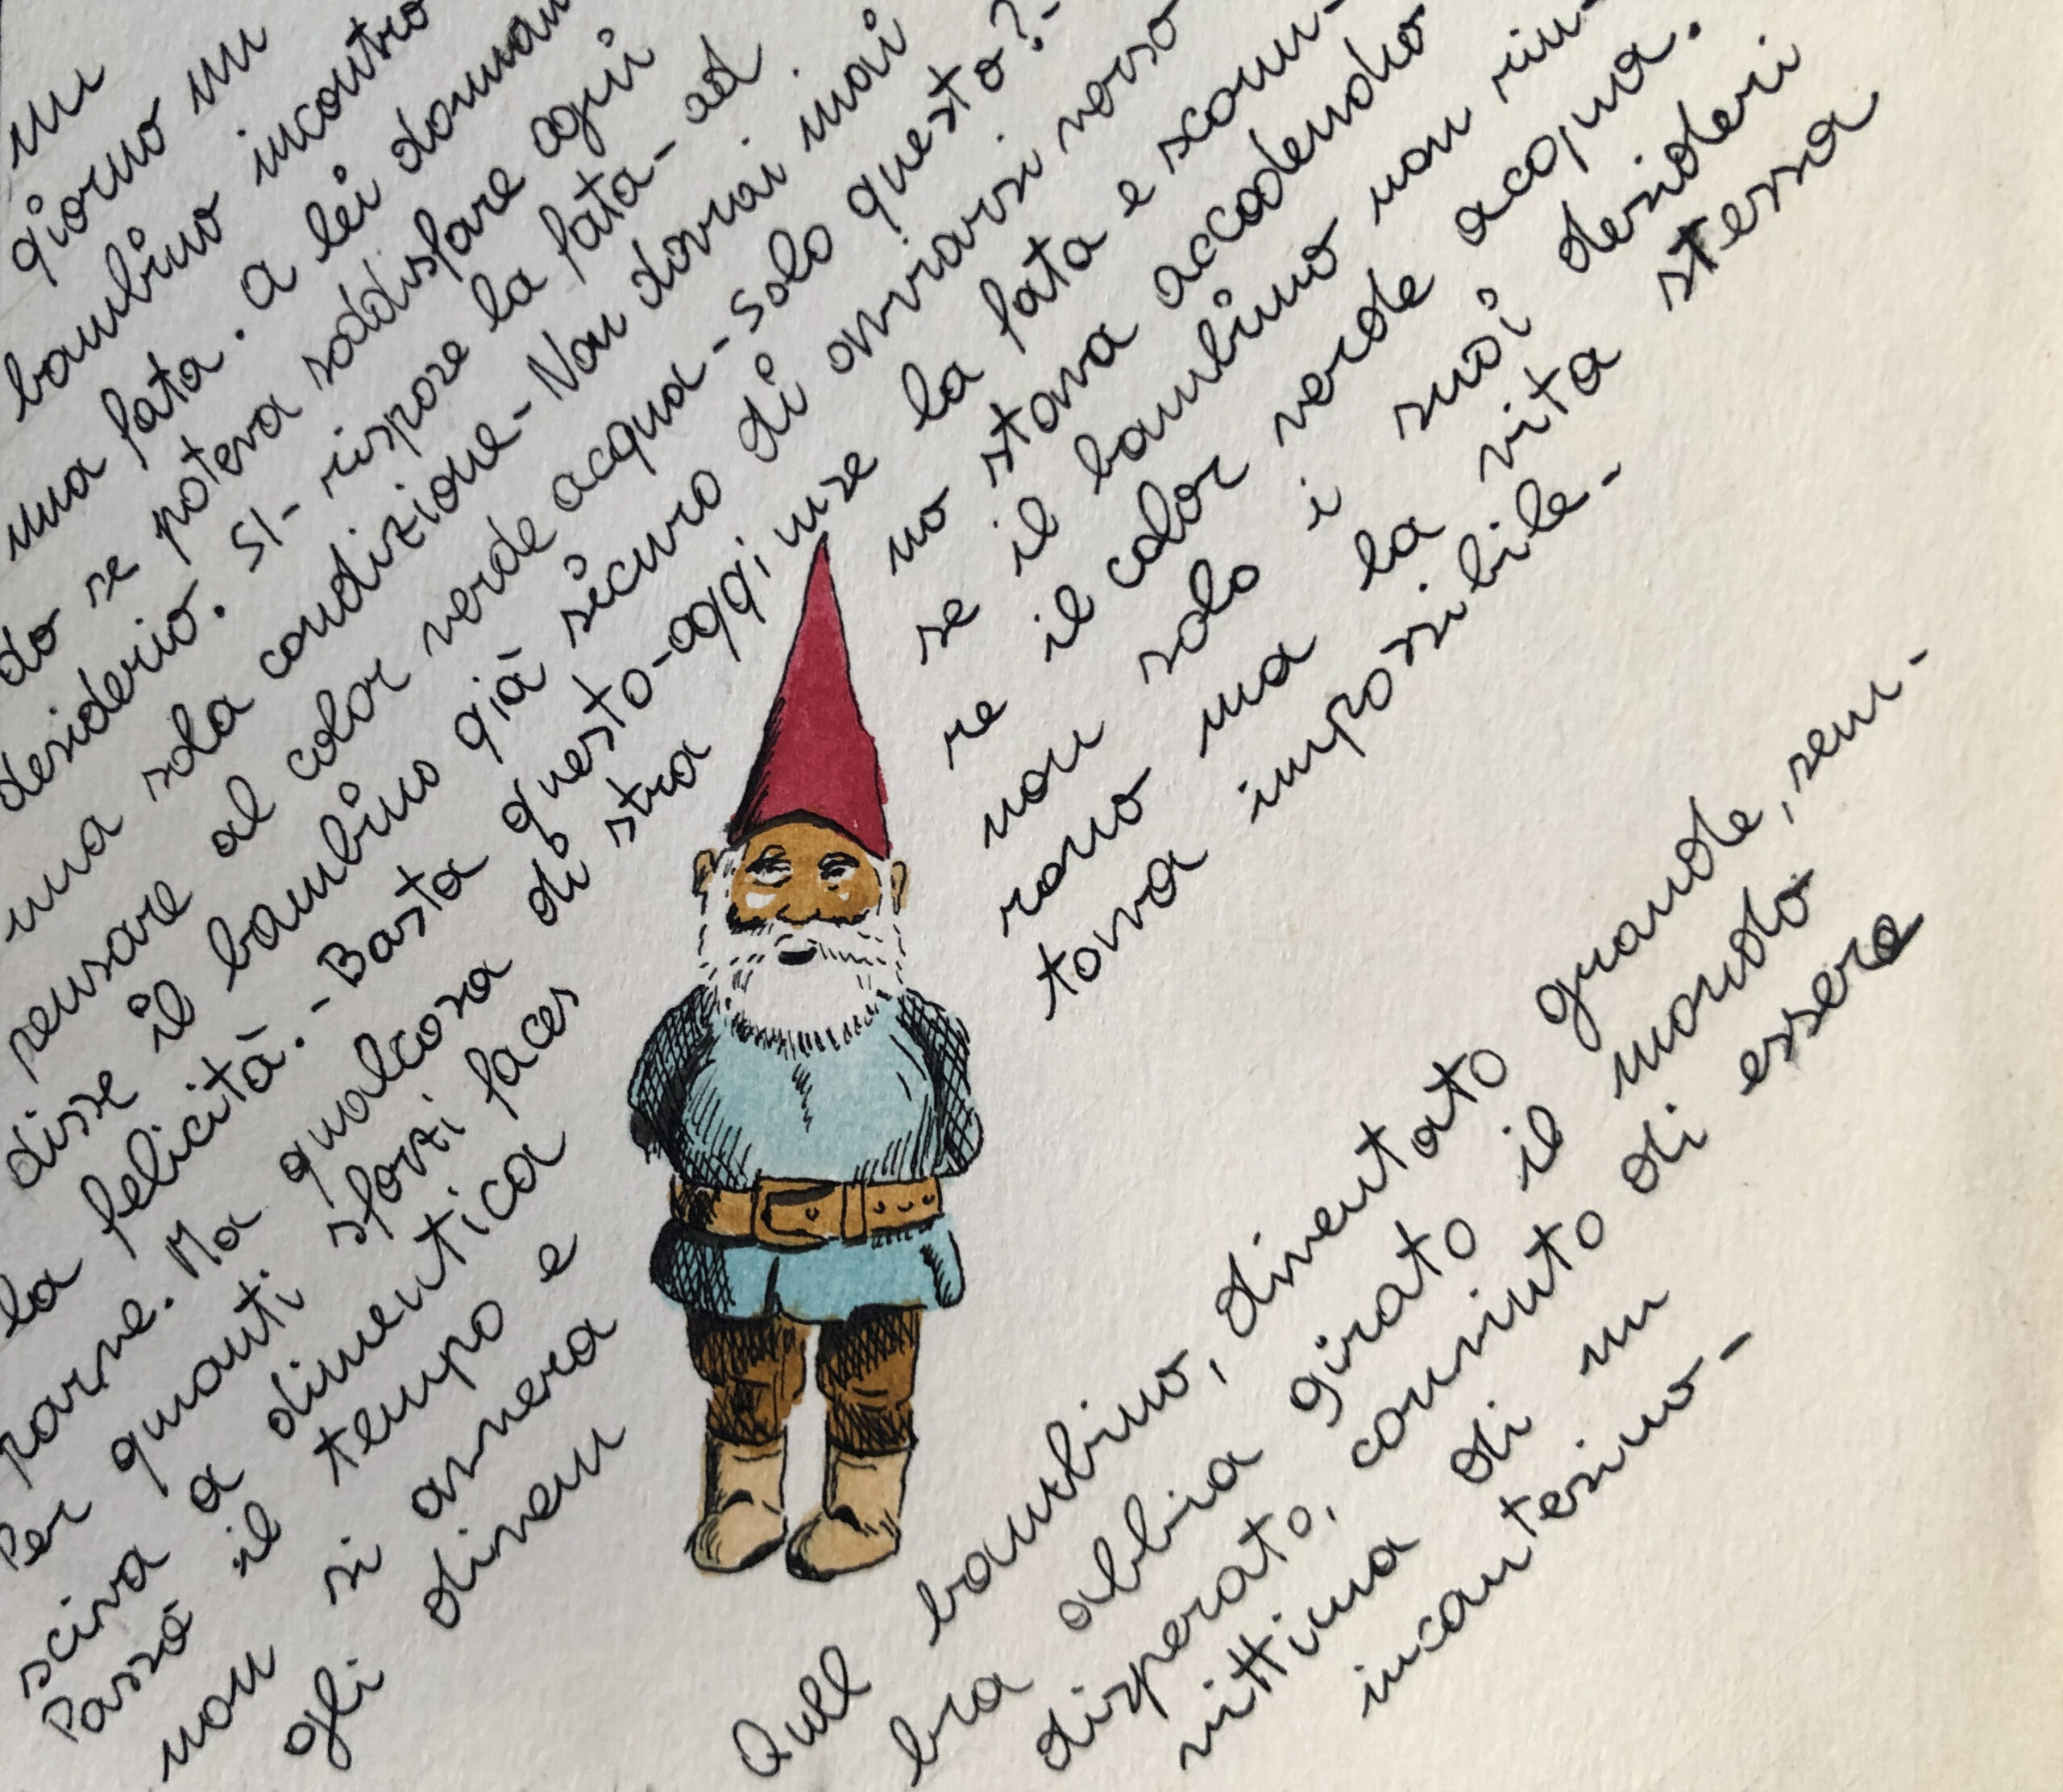 un
giorno un
bambino incontrò
una fata. a lei doman
do se poteva soddisfare ogni
desiderio. SI- rispose la fata- ad
una sola condizione- Non dovrai mai
pensare al color verde acqua- solo questo?-
disse il bambino già sicuro di avviarsi verso
la felicità.-Basta questo-aggiunse la fata e scom-
parve. Ma qualcosa di stra no stava accadendo
Per quanti sforzi faces se il bambino non riu-
sciva a dimentica re il color verde acqua.
Passò il tempo e non solo i suoi desideri
non si avvera rono ma la vita stessa
gli diven tava impossibile-
Qull bambino, diventato grande, sem-
bra abbia girato il mondo
disperato, convinto di essere
vittima di un
incantesimo-